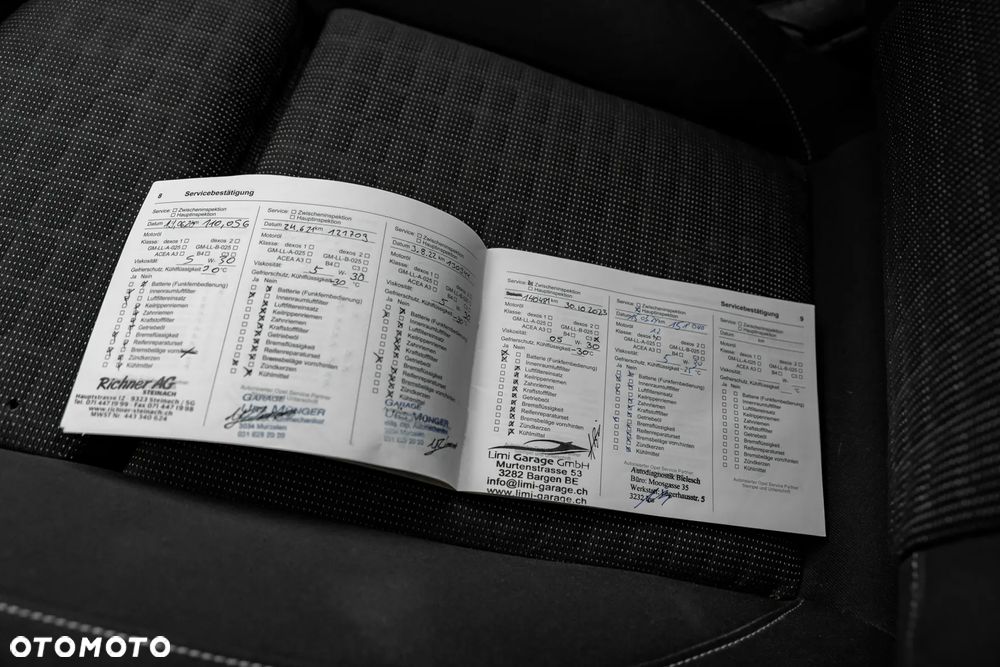 8 Servicebestätigung
Service: Zwischeninspektion
Hauptinspektion
Datum 110,056
Motoröl
Klasse: dexos 1 dexos 2
GM-LL-A-025 GM-LL-B-025
ACEA A3 B4 C3
Viskosität 5 W- 30
Gefrierschutz, Kühlflüssigkeit °C
Ja Nein
Batterie (Funkfernbedienung)
Innenraumluftfilter
Luftfiltereinsatz
Keilrippenriemen
Zahnriemen
Kraftstofffilter
Getriebeöl
Bremsflüssigkeit
Reifenreparaturset
Bremsbeläge vorn/hinten
Zündkerzen
Kühlmittel
Richner AG
STEINACH
Hauptstrasse 12 9323 Steinach / SG
Tel. 071 447 19 99 Fax 071 447 19 98
www.richner-steinach.ch
Service: Zwischeninspektion
Hauptinspektion
Datum 24.6.21 km 121709
Motoröl
Klasse: dexos 1 dexos 2
GM-LL-A-025 GM-LL-B-025
ACEA A3 B4 C3
Viskosität: 5 W- 30
Gefrierschutz, Kühlflüssigkeit -30 °C
Ja Nein
Batterie (Funkfernbedienung)
Innenraumluftfilter
Luftfiltereinsatz
Keilrippenriemen
Zahnriemen
Kraftstofffilter
Getriebeöl
Bremsflüssigkeit
Reifenreparaturset
Bremsbeläge vorn/hinten
Zündkerzen
Kühlmittel
Autorisierter Opel Service Partner
GARAGE
MÜNGER
Service: Zwischeninspektion
Hauptinspektion
Datum 3.8.22 km
Motoröl
Klasse: dexos 1 dexos 2
GM-LL-A-025 GM-LL-B-025
ACEA A3 B4 C3
Viskosität: 5 W- 30
Gefrierschutz, Kühlflüssigkeit
Ja Nein
Batterie (Funkfernbedienung)
Innenraumluftfilter
Luftfiltereinsatz
Keilrippenriemen
Zahnriemen
Kraftstofffilter
Getriebeöl
Bremsflüssigkeit
Reifenreparaturset
Bremsbeläge vorn/hinten
Zündkerzen
Kühlmittel
GARAGE
MÜNGER
Service: Zwischeninspektion
Hauptinspektion
140481 km 30.10.2023
Motoröl
Klasse: dexos 1 dexos 2
GM-LL-A-025 GM-LL-B-025
ACEA A3 B4 C3
Viskosität: 05 W- 30
Gefrierschutz, Kühlflüssigkeit -30 °C
Ja Nein
Batterie (Funkfernbedienung)
Innenraumluftfilter
Luftfiltereinsatz
Keilrippenriemen
Zahnriemen
Kraftstofffilter
Getriebeöl
Bremsflüssigkeit
Reifenreparaturset
Bremsbeläge vorn/hinten
Zündkerzen
Kühlmittel
Limi Garage GmbH
Murtenstrasse 53
3282 Bargen BE
info@limi-garage.ch
www.limi-garage.ch
Service: Zwischeninspektion
Hauptinspektion
Datum
Motoröl
Klasse: dexos 1 dexos 2
GM-LL-A-025 GM-LL-B-025
ACEA A3 B4 C3
Viskosität: 5 W- 30
Gefrierschutz, Kühlflüssigkeit °C
Ja Nein
Batterie (Funkfernbedienung)
Innenraumluftfilter
Luftfiltereinsatz
Keilrippenriemen
Zahnriemen
Kraftstofffilter
Getriebeöl
Bremsflüssigkeit
Reifenreparaturset
Bremsbeläge vorn/hinten
Zündkerzen
Kühlmittel
Autorisierter Opel Service Partner
Autodiagnostik Bielesch
Büro: Moosgasse 35
3232 Ins
Servicebestätigung 9
Service: Zwischeninspektion
Hauptinspektion
Datum km
Motoröl
Klasse: dexos 1 dexos 2
GM-LL-A-025 GM-LL-B-025
ACEA A3 B4 C3
Viskosität: W-
Gefrierschutz, Kühlflüssigkeit °C
Ja Nein
Batterie (Funkfernbedienung)
Innenraumluftfilter
Luftfiltereinsatz
Keilrippenriemen
Zahnriemen
Kraftstofffilter
Getriebeöl
Bremsflüssigkeit
Reifenreparaturset
Bremsbeläge vorn/hinten
Zündkerzen
Kühlmittel
Autorisierter Opel Service Partner
Stempel und Unterschrift
OTOMOTO